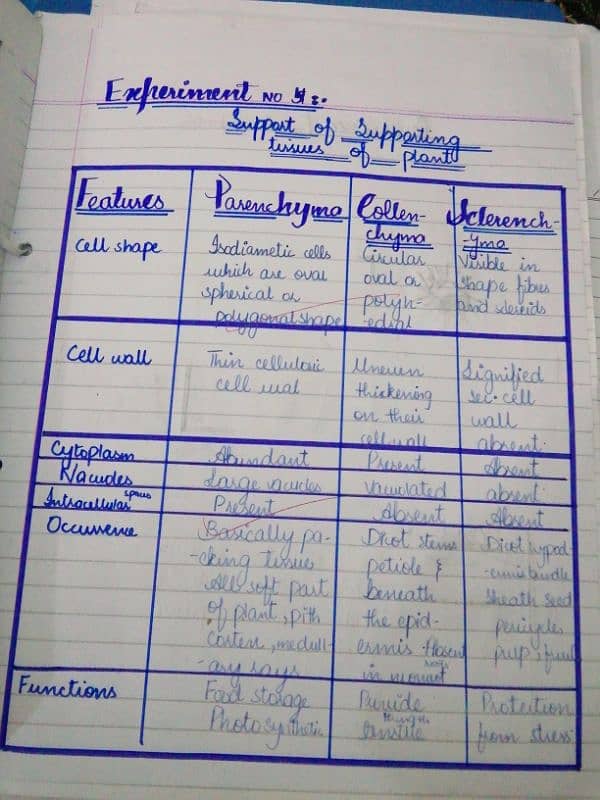 Experiment NO
Support of Supporting
tissues of plant
Features
Parenchyma
Collen-
chyma
Sclerench-
-yma
Cell shape
Isodiametic cells
which are oval
spherical or
polygonal shape
Circular
oval or
polyh-
-edral
Visible in
shape fibres
and sclereids
Cell wall
Thin cellulosic
cell wal
Uneven
thickening
on their
cell wall
Lignified
sec. cell
wall
absent.
Cytoplasm
Abundant
Present
Absent
Vacuoles
Large vacuoles
vacuolated
absent
Intracellular spaces
Present
Absent
Absent
Occurrence
Basically pa-
-cking tissues
All soft part
of plant, pith
cortex, medull-
-ary rays
Dicot stems
petiole &
beneath
the epid-
ermis. Absent
in monocot
Dicot hypod-
-ermis bundle
sheath seed
pericycles
pulp,
Functions
Food storage
Photosynthetic
Provide
tensile
Protection
from stress